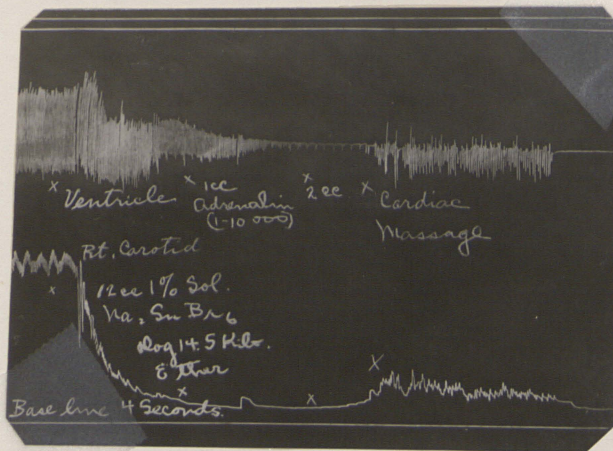 x Ventricle
x 1cc
Adrenalin
(1-10000)
x
2cc
x Cardiac
Massage
Rt. Carotid
x
12cc 1% Sol.
Na₂ Sn Br₆
Dog 14.5 Kilo.
Ether
x
x
X
Base line 4 Seconds.